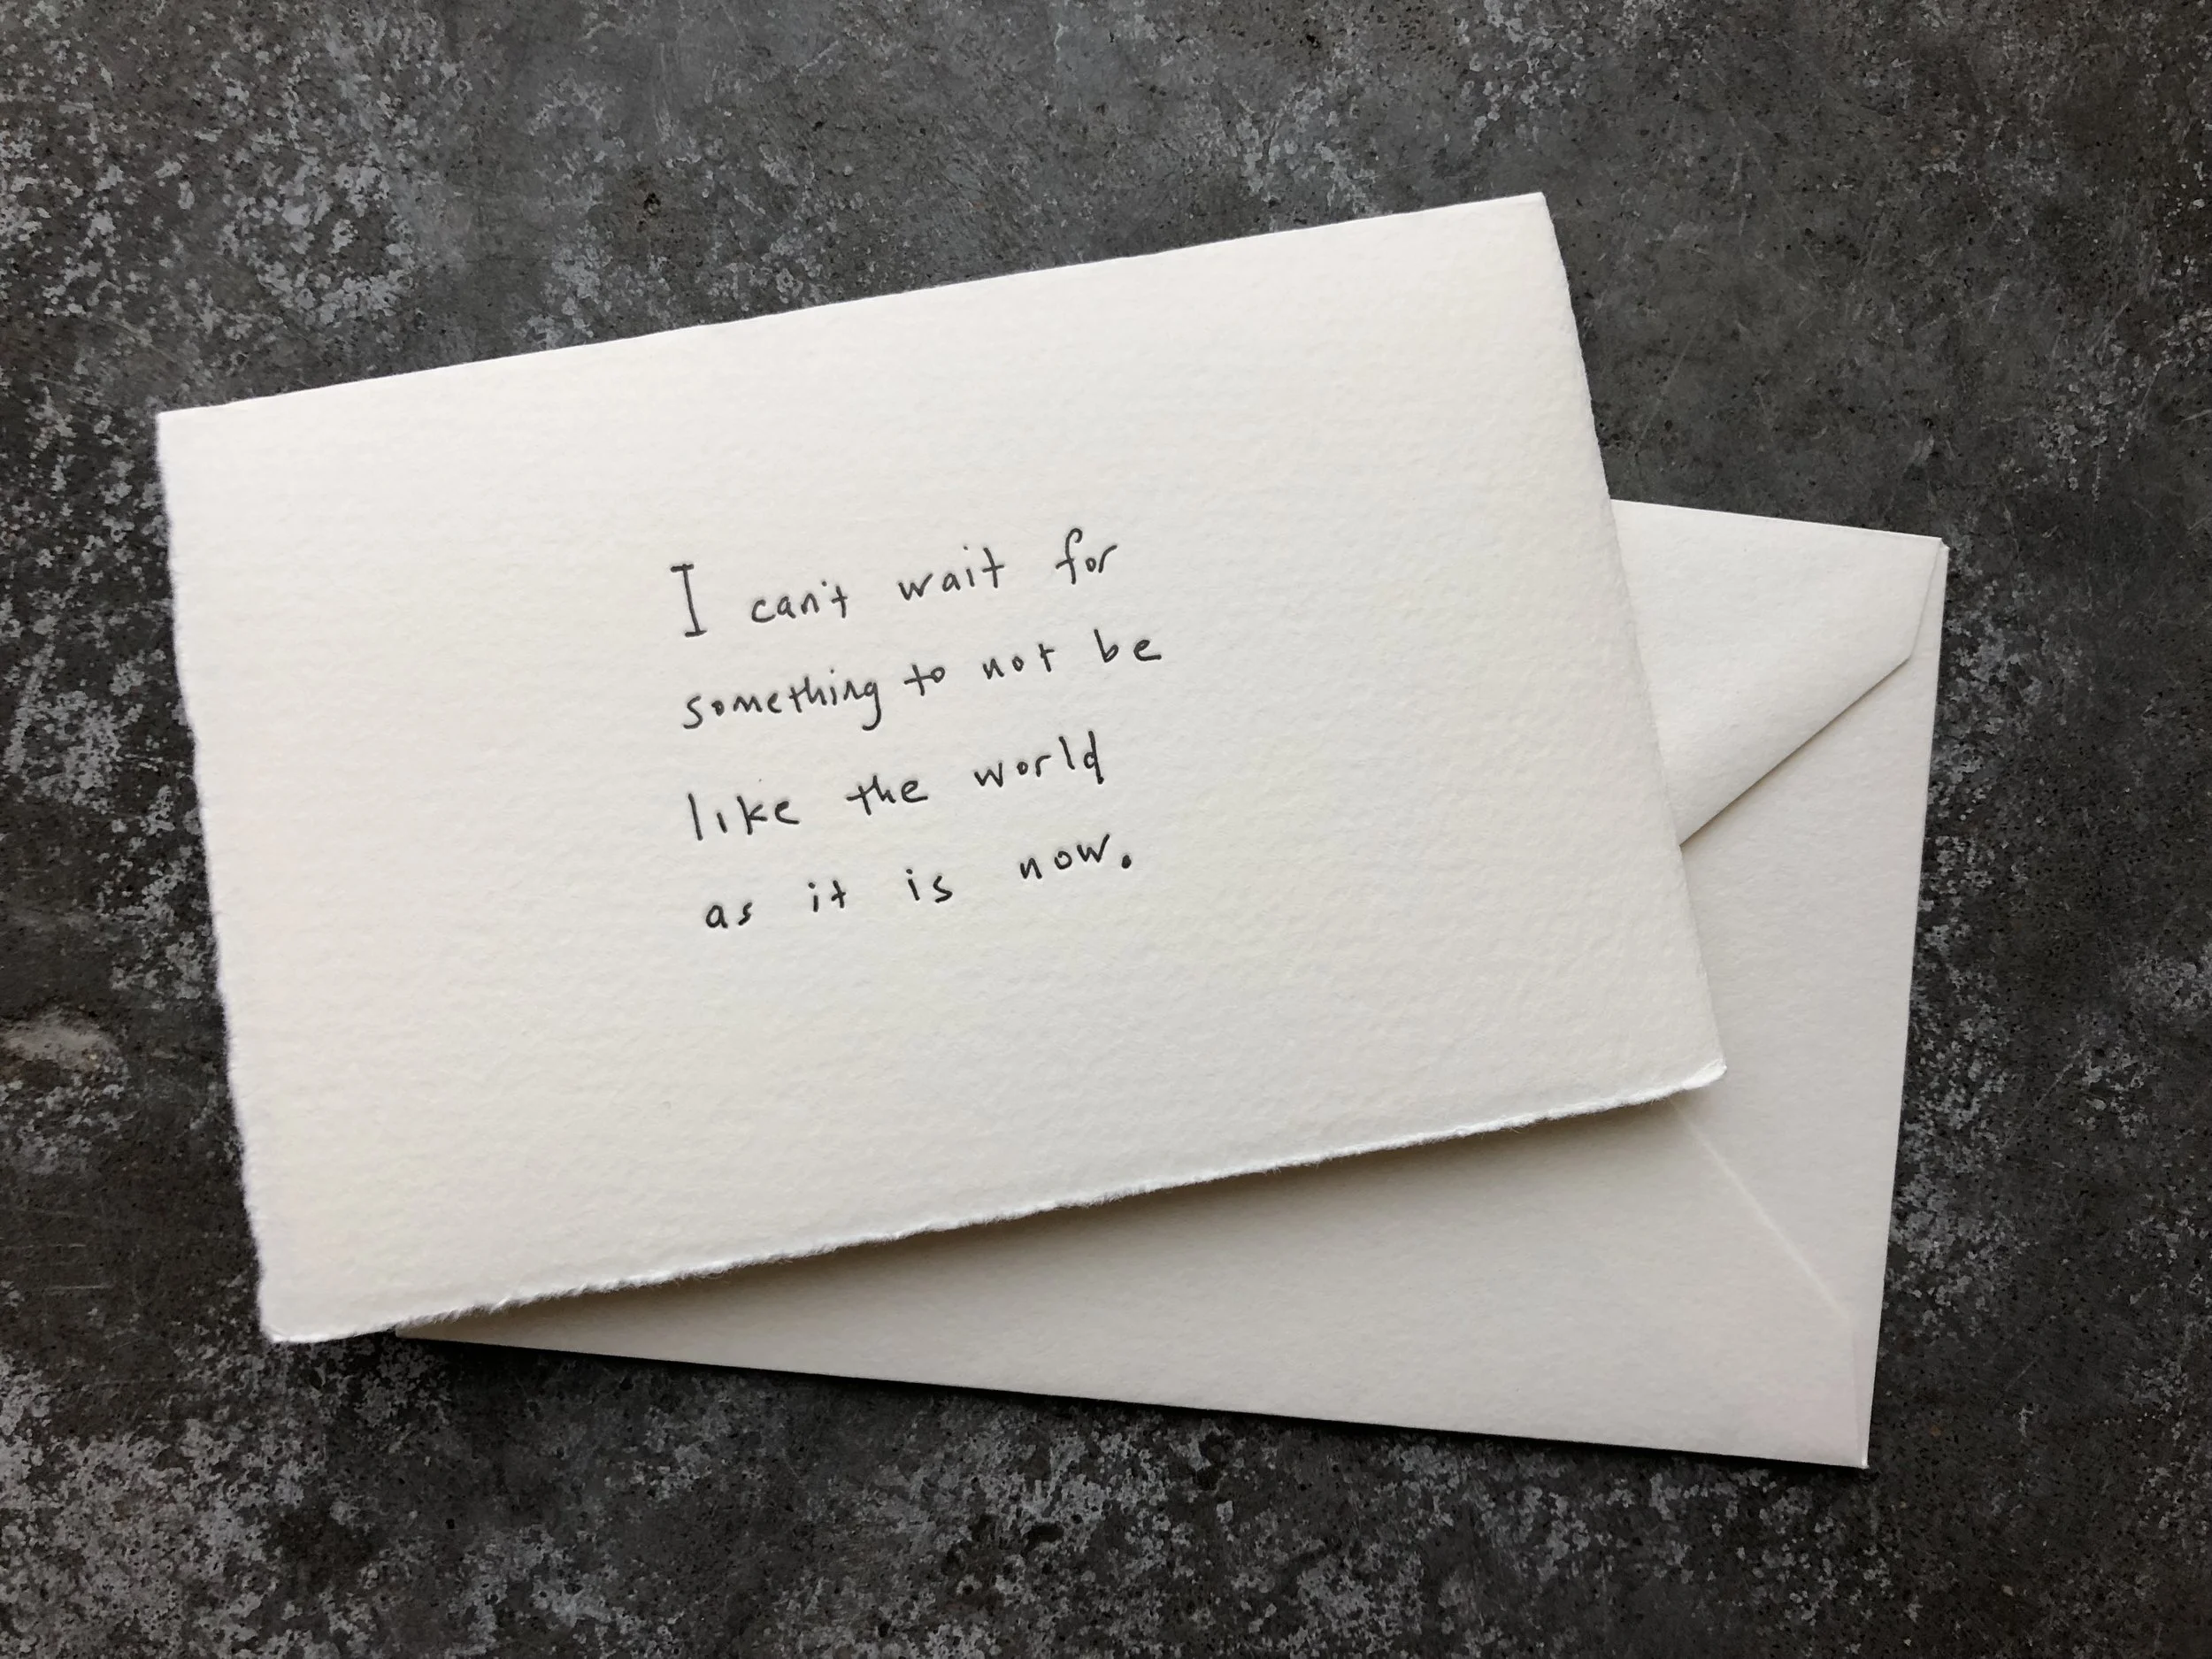 I can't wait for
something to not be
like the world
as it is now.